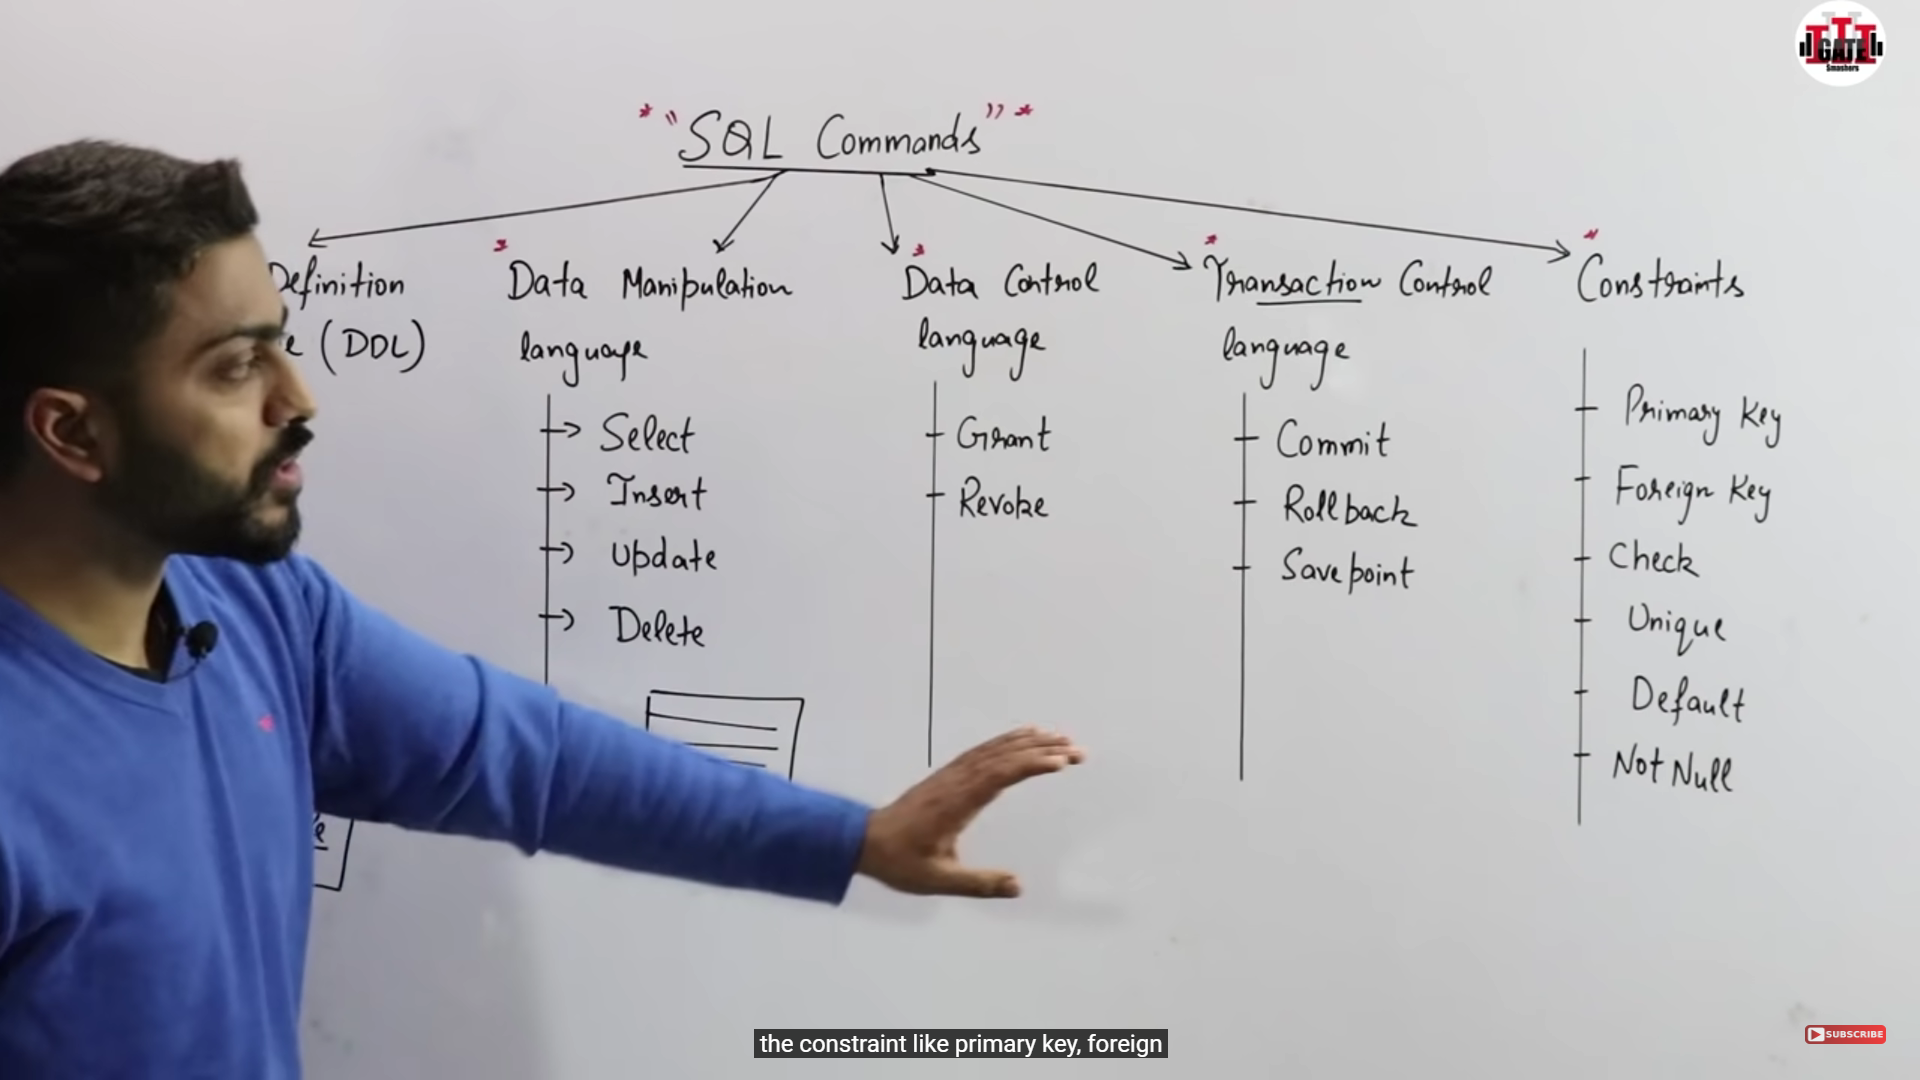 GATE
Smashers
"SQL Commands"
Definition
(DDL)
Data Manipulation
language
Select
Insert
Update
Delete
Data Control
language
Grant
Revoke
Transaction Control
language
Commit
Rollback
Savepoint
Constraints
Primary Key
Foreign Key
Check
Unique
Default
Not Null
the constraint like primary key, foreign
SUBSCRIBE